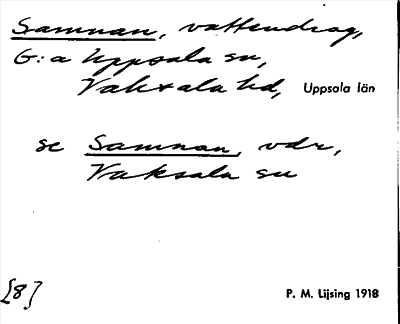 Samnan, vattendrag,
G:a Uppsala sn,
Vaksala hd, Uppsala län
se Samnan, vdr,
Vaksala sn
[8]
P. M. Lijsing 1918